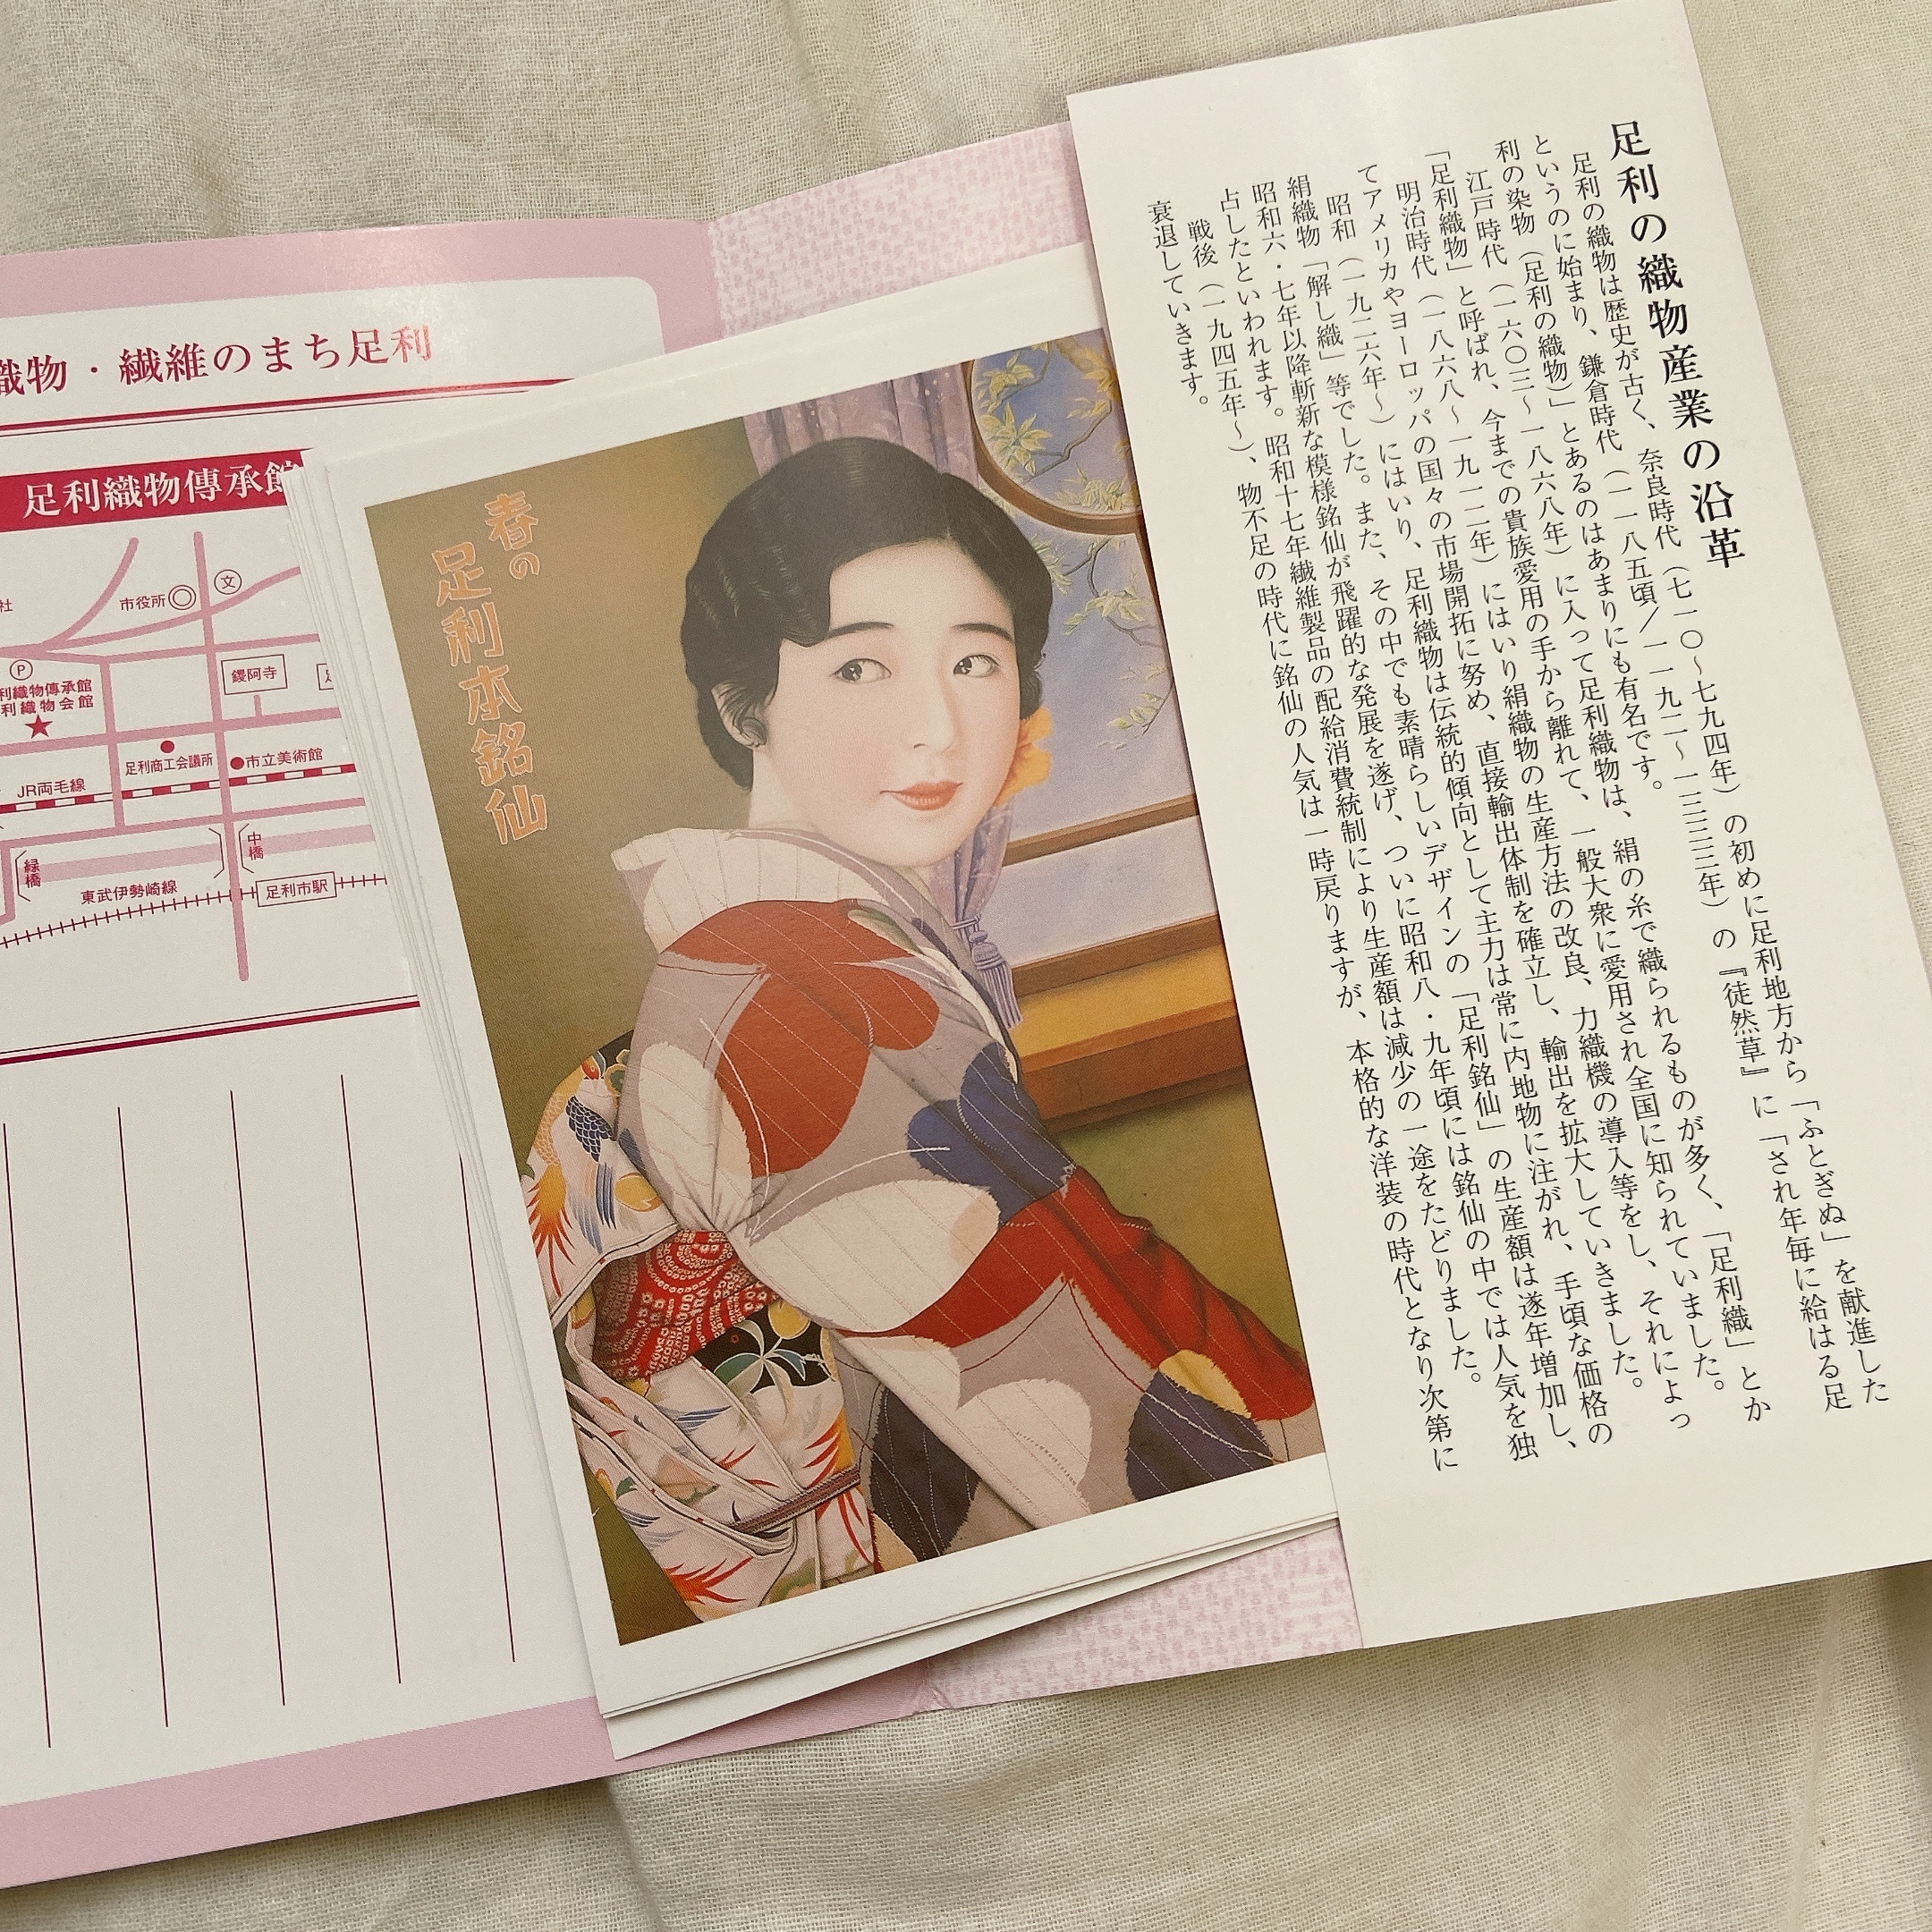 織物・繊維のまち足利
足利織物傳承館
社
市役所
文
P
利織物傳承館
利織物会館
鑁阿寺
足利商工会議所
市立美術館
JR両毛線
緑橋
中橋
東武伊勢崎線
足利市駅
春の
足利本銘仙
足利の織物産業の沿革
足利の織物は歴史が古く、奈良時代（七一〇～七九四年）の初めに足利地方から「ふとぎぬ」を献進した
というのに始まり、鎌倉時代（一一八五頃／一一九二～一三三三年）の『徒然草』に「され年毎に給はる足
利の染物（足利の織物）」とあるのはあまりにも有名です。
江戸時代（一六〇三～一八六八年）に入って足利織物は、絹の糸で織られるものが多く、「足利織」とか
「足利織物」と呼ばれ、今までの貴族愛用の手から離れて、一般大衆に愛用され全国に知られていました。
明治時代（一八六八～一九一二年）にはいり絹織物の生産方法の改良、力織機の導入等をし、それによっ
てアメリカやヨーロッパの国々の市場開拓に努め、直接輸出体制を確立し、輸出を拡大していきました。
昭和（一九二六年～）にはいり、足利織物は伝統的傾向として主力は常に内地物に注がれ、手頃な価格の
絹織物「解し織」等でした。また、その中でも素晴らしいデザインの「足利銘仙」の生産額は遂年増加し、
昭和六・七年以降斬新な模様銘仙が飛躍的な発展を遂げ、ついに昭和八・九年頃には銘仙の中では人気を独
占したといわれます。昭和十七年繊維製品の配給消費統制により生産額は減少の一途をたどりました。
戦後（一九四五年～）、物不足の時代に銘仙の人気は一時戻りますが、本格的な洋装の時代となり次第に
衰退していきます。